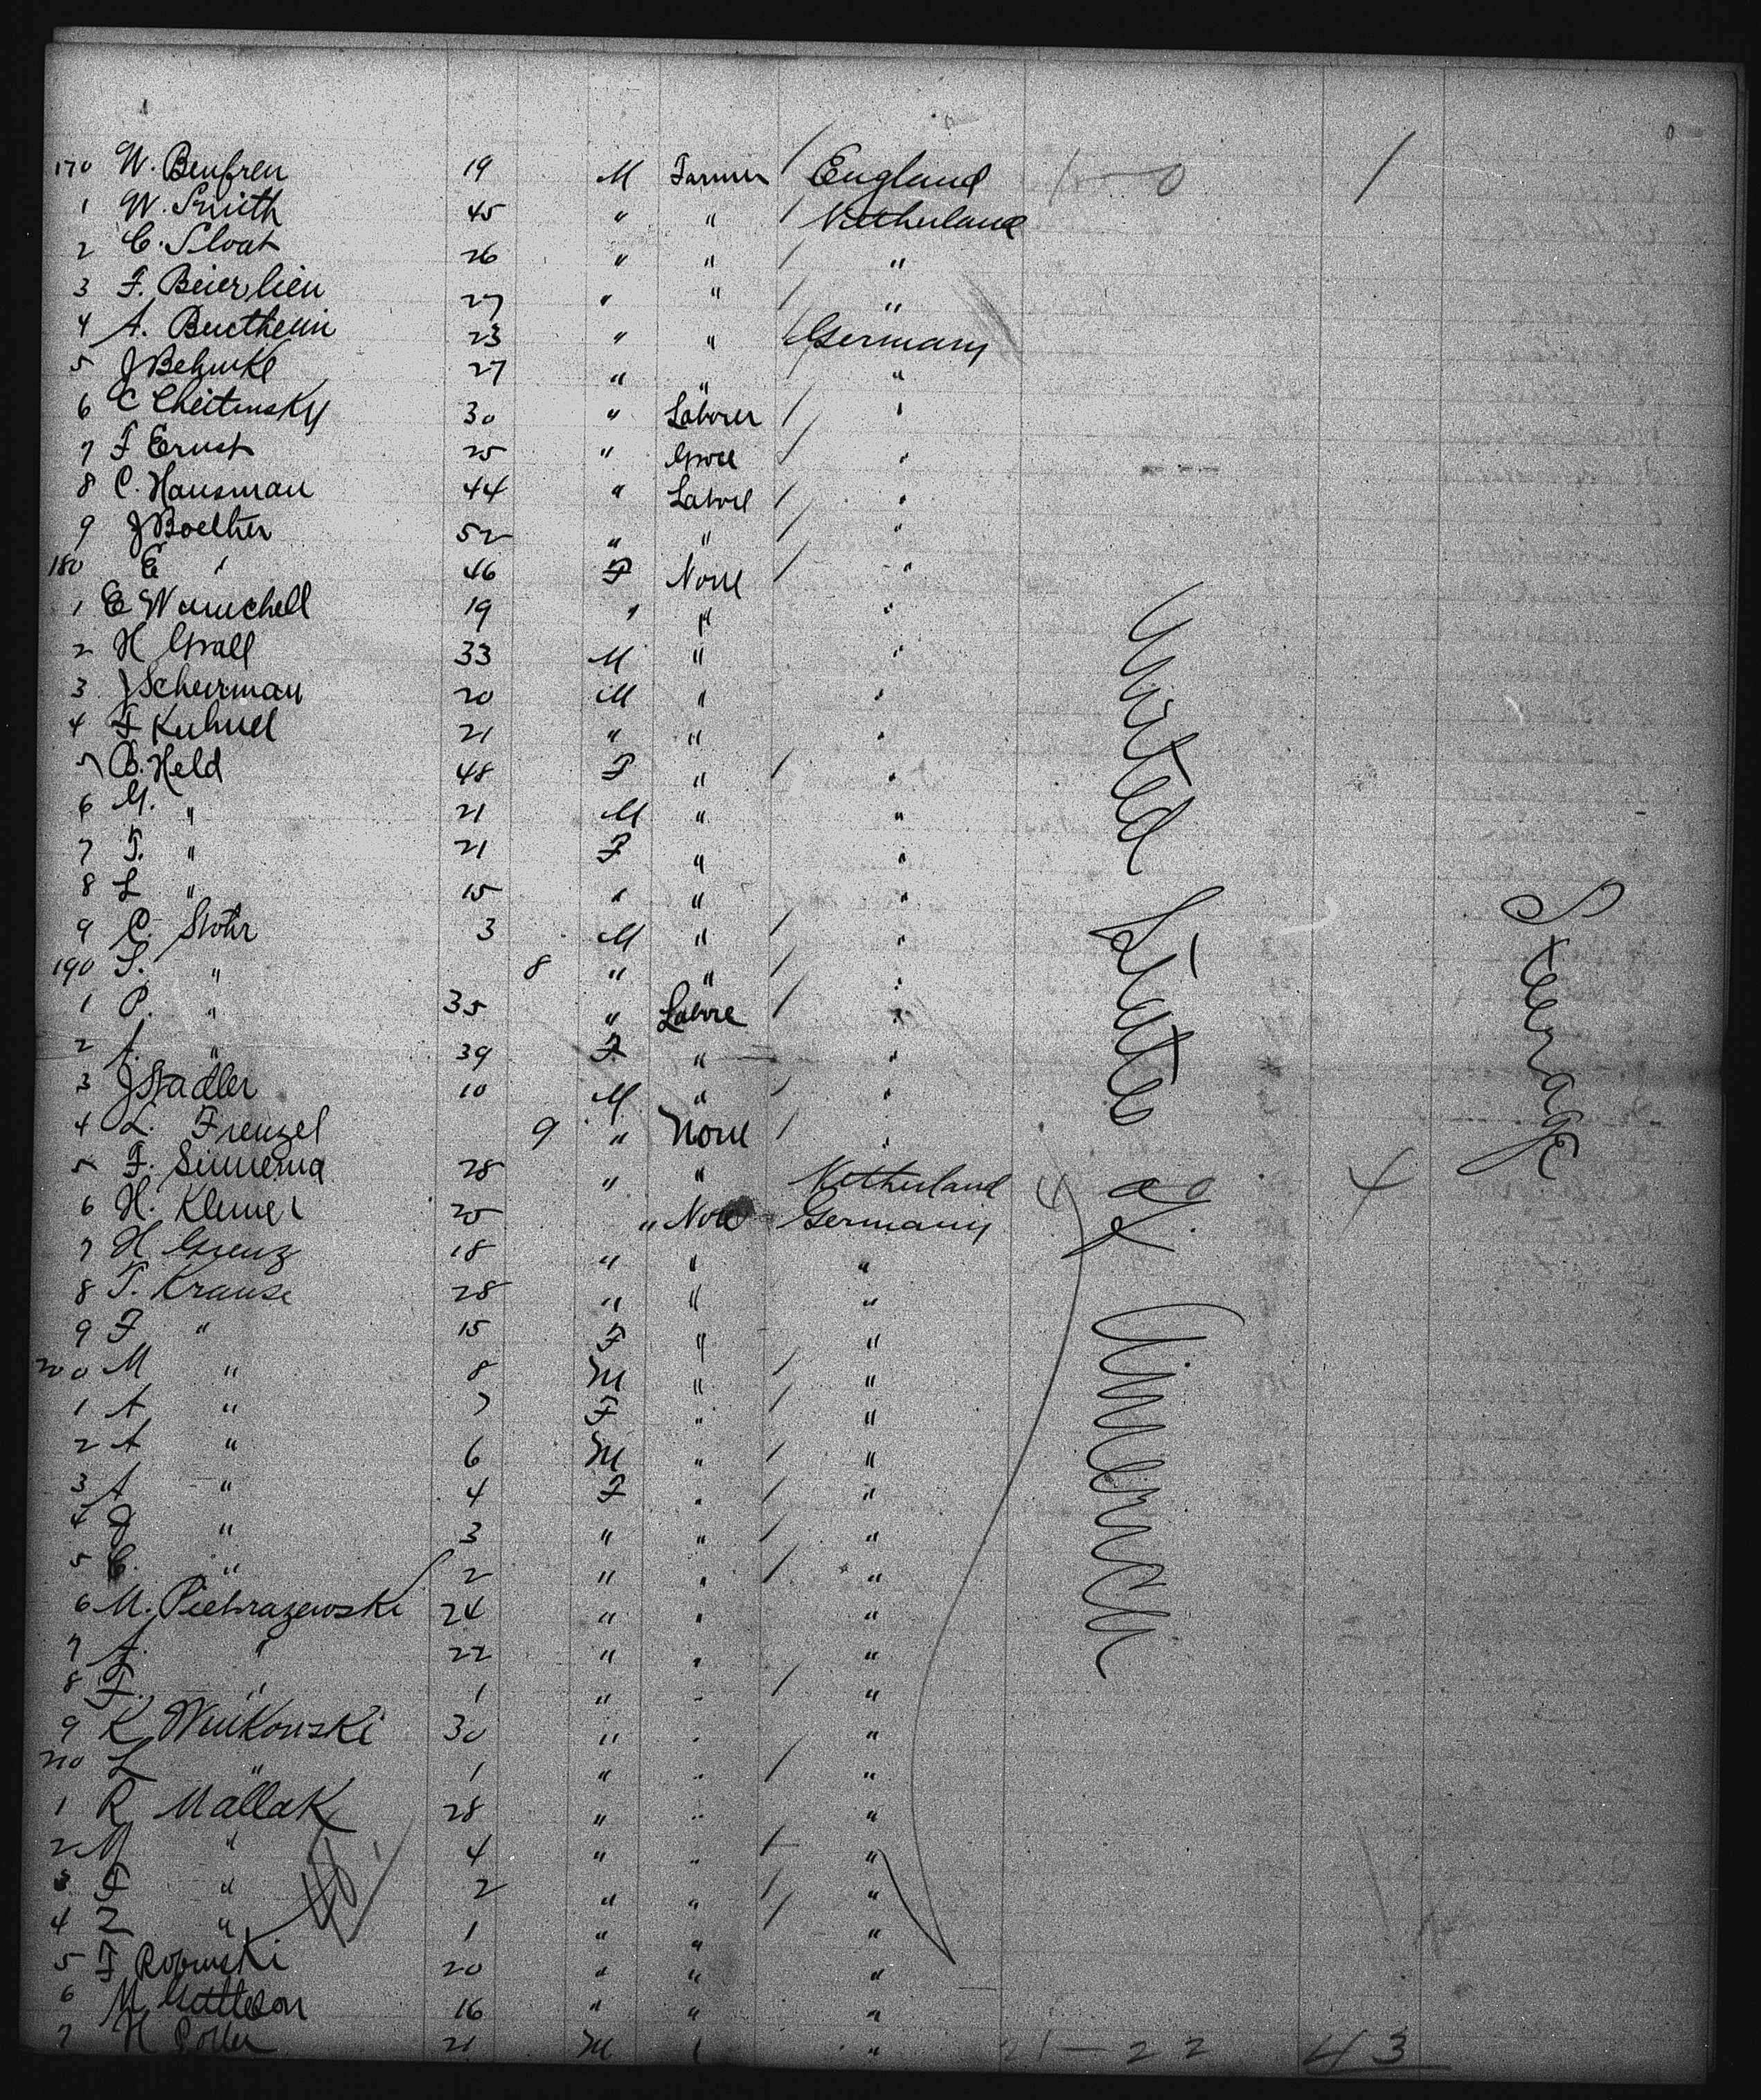 170 W. Benfren 19 M Farmer / England 1 - 0 1
1 W. Smith 45 " " / Netherland
2 C. Sloat 26 " " / "
3 F. Beierlien 27 " " / "
4 A. Buethein 23 " " / Germany
5 J Behnke 27 " " "
6 C Cheitensky 30 " Laborer / "
7 F Ernst 25 " /  "
8 C. Hausman 44 " Labore / "
9 J Boelther 52 " " / "
180 E " 46 F None / "
1 E Wunchell 19 " " "
2 H Grall 33 M " "
3 J Scheurman 20 M " "
4 F Kuhnel 21 " " "
5 B. Held 48 F " / "
6 M. " 21 M " "
7 T. " 21 F " "
8 L " 15 " " "
9 C. Stohr 3 M " / "
190 S. " 8 " " / "
1 P. " 35 " Labore / "
2 A. " 39 F. " "
3 J Stadler 10 M " / "
4 L. Frenzel 9 " None / "
5 F. Sinnema 28 " " Netherland 4 0 4
6 H. Klemer 25 " None Germany
7 H Grenz 18 " " "
8 T. Krause 28 " " "
9 F " 15 F " "
200 M " 8 M " / "
1 A " 7 F " / "
2 A " 6 M " / "
3 A " 4 F " / "
4 J " 3 " " / "
5 C. " 2 " " / "
6 M. Piehrazewski 24 " " "
7 A. " 22 " " "
8 F. " 1 " " / "
9 K Winkowski 30 " " "
210 L " 1 " " / "
1 R Mallak 28 " " "
2 M " 4 " " / "
3 F " 2 " " / "
4 Z " 1 " " / "
5 F Robinski 20 " " "
6 M. 16 " " "
7 H Potter 21 M " " 21 - 22 43
United States of America
Steerage